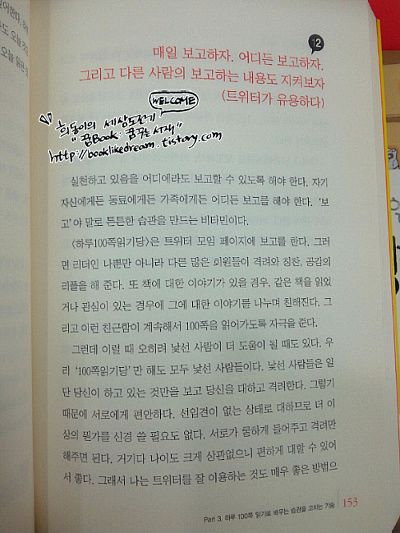 12
매일 보고하자. 어디든 보고하자.
그리고 다른 사람의 보고하는 내용도 지켜보자
(트위터가 유용하다)
WELCOME
희동이의 세상도전기
"꿈Book: 꿈꾸는 서재"
http://booklikedream.tistory.com
실천하고 있음을 어디에라도 보고할 수 있도록 해야 한다. 자기
자신에게든 동료에게든 가족에게든 어디든 보고를 해야 한다. '보
고'야 말로 튼튼한 습관을 만드는 비타민이다.
〈하루100쪽읽기당〉은 트위터 모임 페이지에 보고를 한다. 그러
면 리더인 나뿐만 아니라 다른 많은 회원들이 격려와 칭찬, 공감의
리플을 해 준다. 또 책에 대한 이야기가 있을 경우, 같은 책을 읽었
거나 관심이 있는 경우에 그에 대한 이야기를 나누며 친해진다. 그
리고 이런 친근함이 계속해서 100쪽을 읽어가도록 자극을 준다.
그런데 이럴 때 오히려 낯선 사람이 더 도움이 될 때도 있다. 우
리 '100쪽읽기당'만 해도 모두 낯선 사람들이다. 낯선 사람들은 일
단 당신이 하고 있는 것만을 보고 당신을 대하고 격려한다. 그렇기
때문에 서로에게 편안하다. 선입견이 없는 상태로 대하므로 더 이
상의 뭔가를 신경 쓸 필요도 없다. 서로가 뭉하게 들어주고 격려만
해주면 된다. 거기다 나이도 크게 상관없으니 편하게 대할 수 있어
서 좋다. 그래서 나는 트위터를 잘 이용하는 것도 매우 좋은 방법으
Part 3. 하루 100쪽 읽기로 배우는 습관을 고치는 기술 153